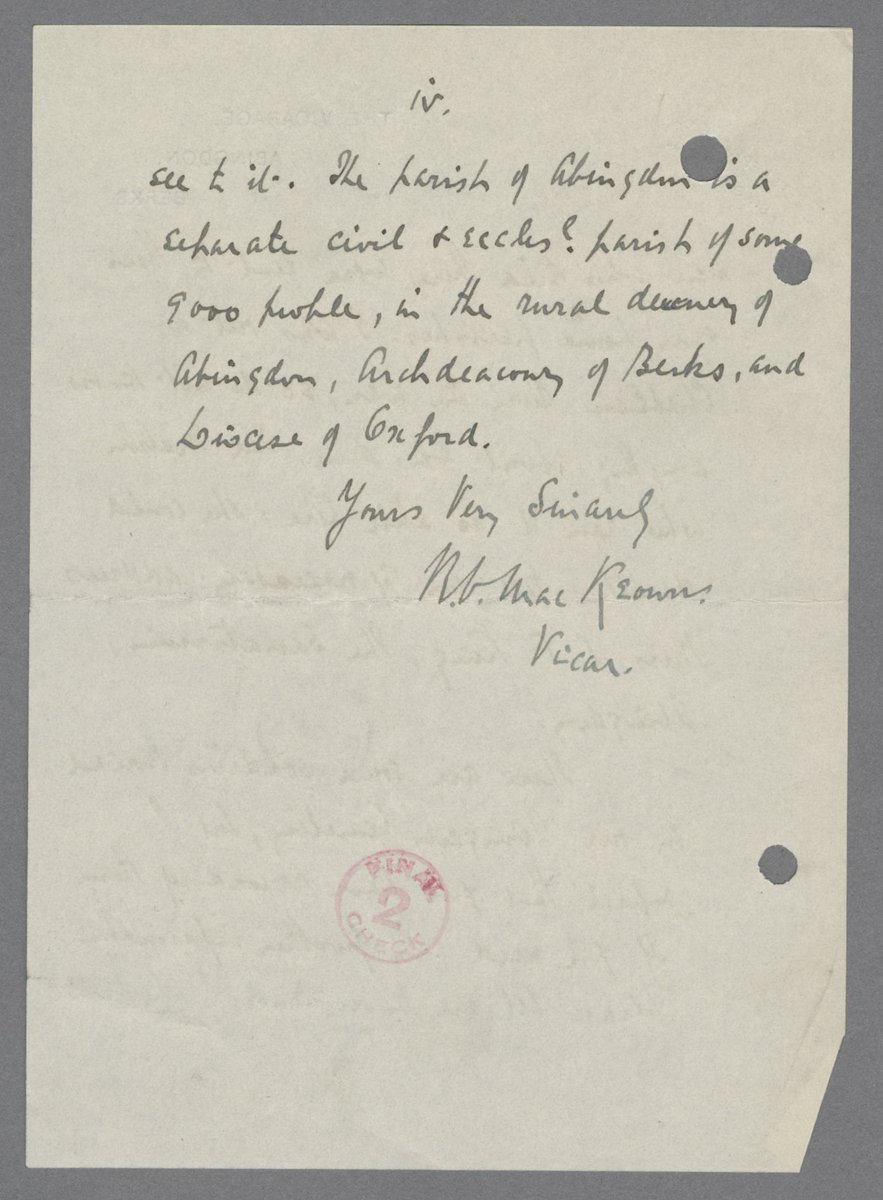 iv.
see to it. The parish of Abingdon is a
separate civil & eccles?. parish of some
9000 people, in the rural deanery of
Abingdon, Archdeaconry of Berks, and
Diocese of Oxford.
Yours Very Sincerely
Mac Keown.
Vicar.
FINAL
2
CHECK